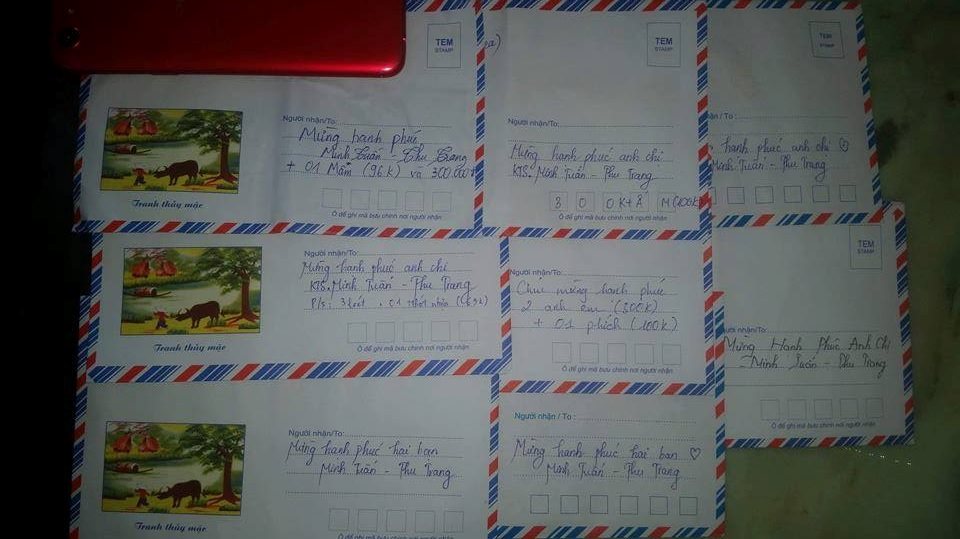 TEM
STAMP
Người nhận/To:
Mừng hạnh phúc
Minh Tuấn - Thu Trang
+ 01 Mâm (96k) và 300.000đ
Ô để ghi mã bưu chính nơi người nhận
Tranh thủy mặc
TEM
STAMP
Người nhận/To:
Mừng hạnh phúc anh chị
KTS. Minh Tuấn - Thu Trang
8 0 0k+8 M(100k
Ô để ghi mã bưu chính nơi người nhận
TEM
STAMP
/To :
hạnh phúc anh chị ♡
Minh Tuấn - Thu Trang
Người nhận/To:
Mừng hạnh phúc anh chị
KTS. Minh Tuấn - Thu Trang
P/s: 3 két + 01
Ô để ghi mã bưu chính nơi người nhận
Tranh thủy mặc
Người nhận/To:
Chúc mừng hạnh phúc
2 anh em (500k)
+ 01 phích (100k)
Ô để ghi mã bưu chính nơi người nhận
TEM
STAMP
Người nhận/To:
Mừng Hạnh Phúc Anh Chị
Minh Tuấn - Thu Trang
Ô để ghi mã bưu chính nơi người nhận
Người nhận/To:
Mừng hạnh phúc hai bạn
Minh Tuấn - Thu Trang
Ô để ghi mã bưu chính nơi người nhận
Tranh thủy mặc
Người nhận / To :
Mừng hạnh phúc hai bạn ♡
Minh Tuấn - Thu Trang